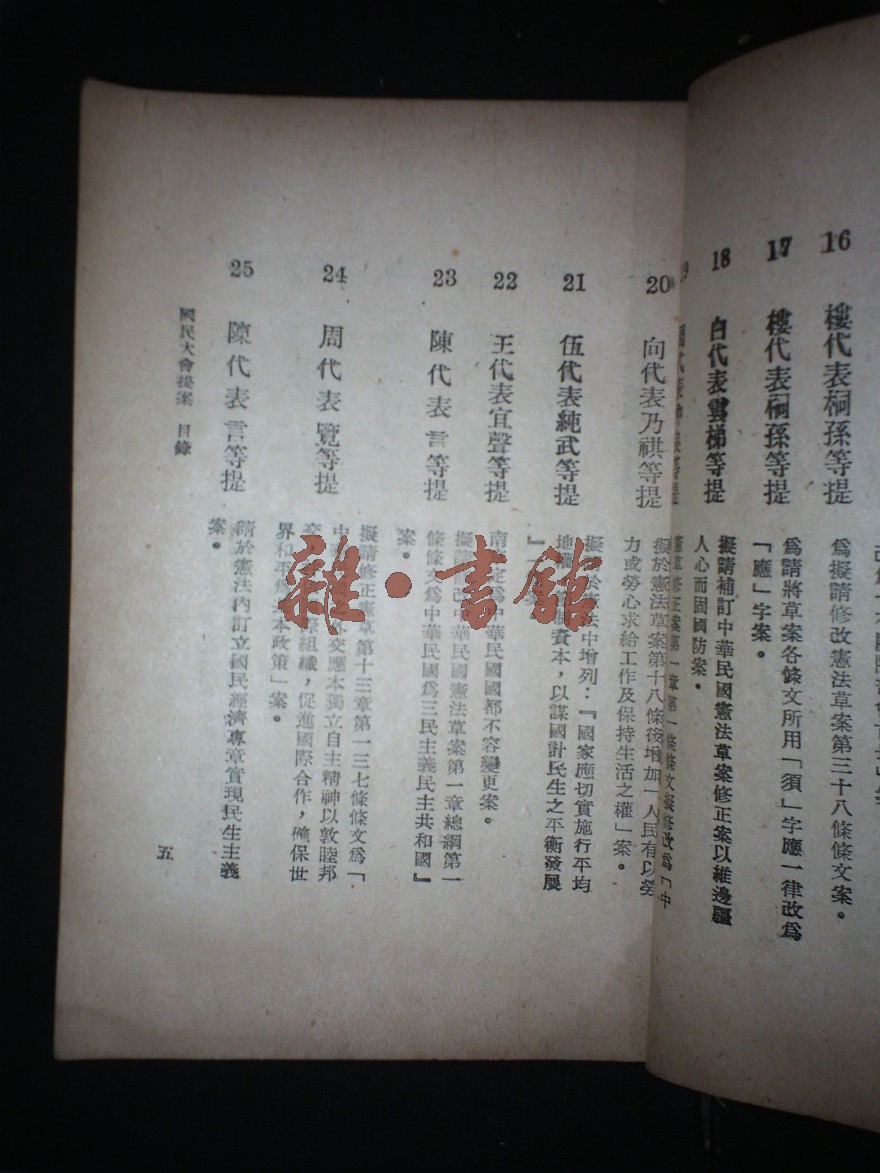 16 樓代表桐孫等提
爲擬請修改憲法草案第三十八條條文案。
17 樓代表桐孫等提
爲請將草案各條文所用「須」字應一律改爲
「應」字案。
18 白代表雲梯等提
擬請補訂中華民國憲法草案修正案以維邊疆
人心而固國防案。
憲草修正案第一章第一條條文擬修改爲「中
20 向代表乃祺等提
擬於憲法草案第十八條後增加「人民有以勞
力或勞心求給工作及保持生活之權」案。
21 伍代表純武等提
擬於憲法中增列：『國家應切實施行平均
地權 資本，以謀國計民生之平衡發展
』
22 王代表宜聲等提
南京 爲中華民國國都不容變更案。
23 陳代表言等提
擬請修改中華民國憲法草案第一章總綱第一
條條文爲中華民國爲三民主義民主共和國』
案。
24 周代表覽等提
擬請修正憲草第十三章第一三七條條文爲「
中 之外交應本獨立自主精神以敦睦邦
組織，促進國際合作，確保世
界和平 本政策」案。
25 陳代表言等提
請於憲法內訂立國民經濟專章實現民生主義
案。
國民大會提案 目錄
五
雜·書館